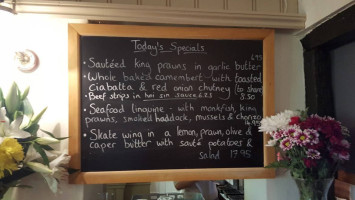 Today's Specials
• Sautéed king prawns in garlic butter 6.95
• Whole baked camembert - with toasted
Ciabatta & red onion chutney (to share)
• Beef strips in hoi sin sauce 6.25 8.50
• Seafood linguine - with monkfish, king
prawns, smoked haddock, mussels & chorizo
• Skate wing in a lemon, prawn, olive &
caper butter with sauté potatoes &
salad 17.95